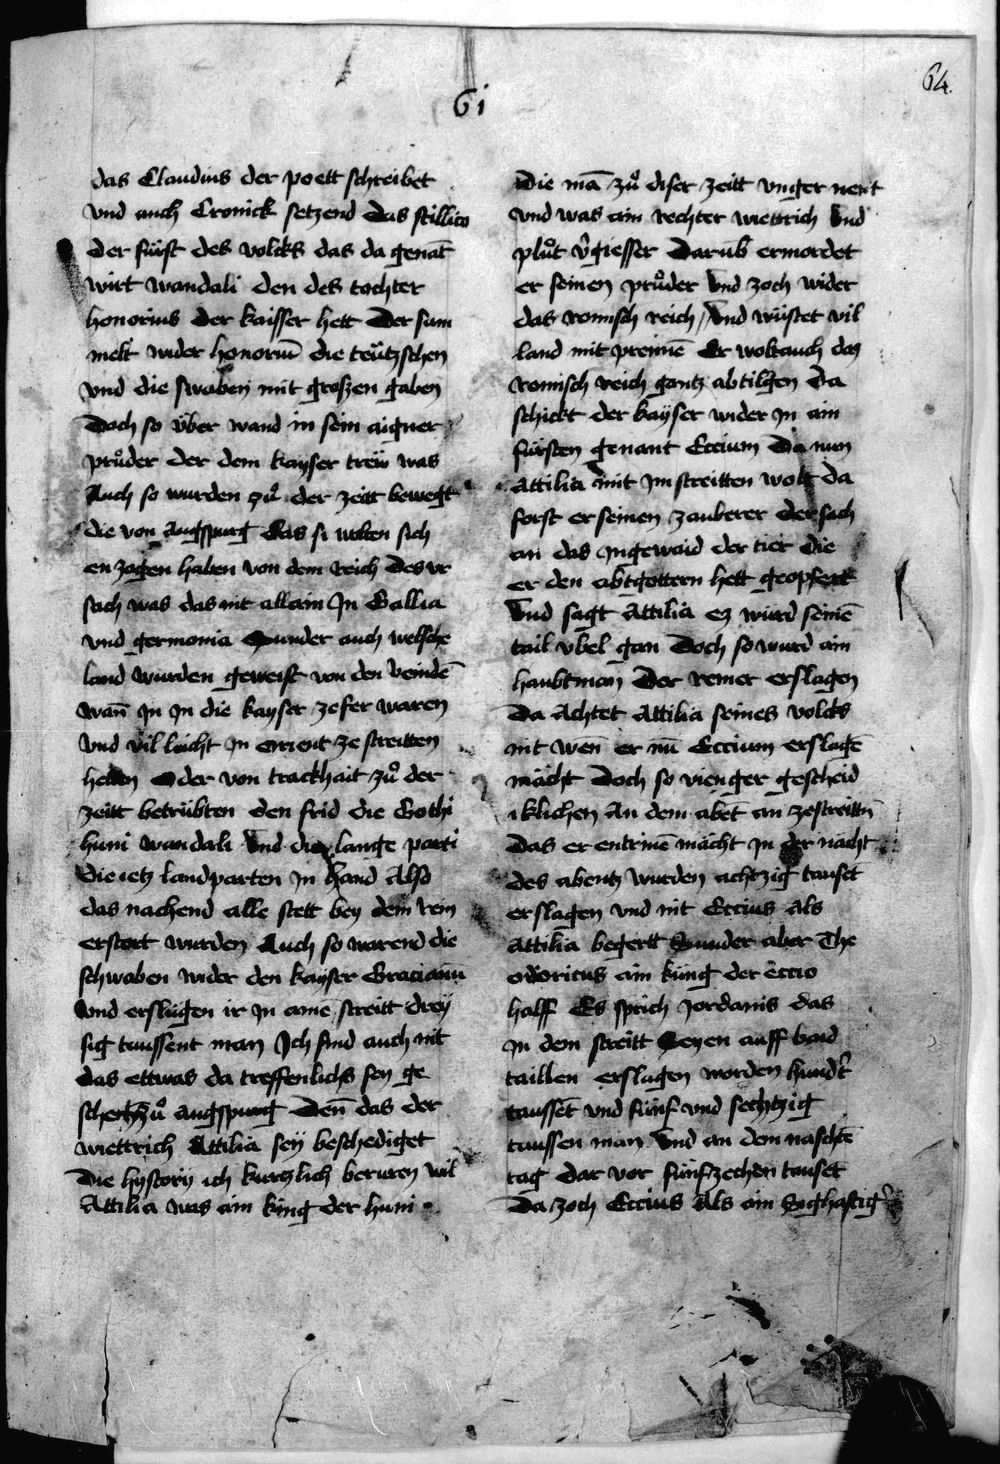 64.
61
das Claudius der poett schreibet
vnd auch Cronick setzend Das stillico
der fürst des volcks das da genāt
wirt wandali den des tochter
honorius der kaisser hett Der sam
melt wider honoriū die teützschen
vnd die swaben mit groszen gaben
Doch so über wand in sein aigner
průder der dem kayser treü was
Auch so wurden zů der zeitt bewegt
die von augspurg das si wolten sich
en zogen haben von dem reich Des vr
sach was das nit allain In Gallia
vnd germonia Sunder auch welsche
land wurden geweist von den veindē
wañ In In die kayser ze fer waren
vnd vil leicht In orrient ze streitten
hetten Oder von trackhait zů der
zeitt betrübten den frid die Gothi
huni wandali vnd die lange parti
die ietz landparten In hand Also
das nachend alle stett bey dem Rem
erstört wurden Auch so warend die
schwaben wider den kayser Gracianū
vnd erslügen ir In ainē streitt drey
sig taussent man Ich find auch nit
das ettwas da treffenlichs sey ge
schech zů augspurg Deñ das der
wiettrich Attilia sey beschediget
Die hystory ich kurtzlich beruren wil
Attilia was ain king der huni
Die mā zů diser zeitt vnger nent
vnd was ain rechter wiettrich vnd
plůt v̂giesser Darūb ermordet
er seinen průder vnd zoch wider
das romisch reich / vnd wüstet vil
land mit prennē Er wolt auch das
romisch reich gantz abtilgen Da
schickt der kayser wider In ain
fürsten genant Eccium Da nun
Attilia mit Im streitten wolt da
forst er seinen zauberer der sach
an das Ingewaid der tier die
er den abtgottern hett geopfert
vnd sagt Attilia ez wurd seinē
tail vbel gan Doch so wurd ain
haubtman Der remer erslagen
Da Achtet Attilia seines volcks
nit wen er nū Eccium erslagē
mächt Doch so vieng er gescheid
iklichen an dem abēt an ze streittn̄
Das er entrinē mächt In der nacht
des abentz wurden achtzig tauset
erslagen vnd nit Eccius als
Attilia begertt Sunder aber The
odoricus ain küng der eccio
halff Es sprich Jordanis das
In dem streitt Seyen auff baid
taillen erslagen worden hundr̂t
taussēt vnd fünf vnd sechtzig
taussen man vnd an dem naschtē
tag dar vor fünfzechen tauset
Da zoch Eccius Als ain Sighaftig̃